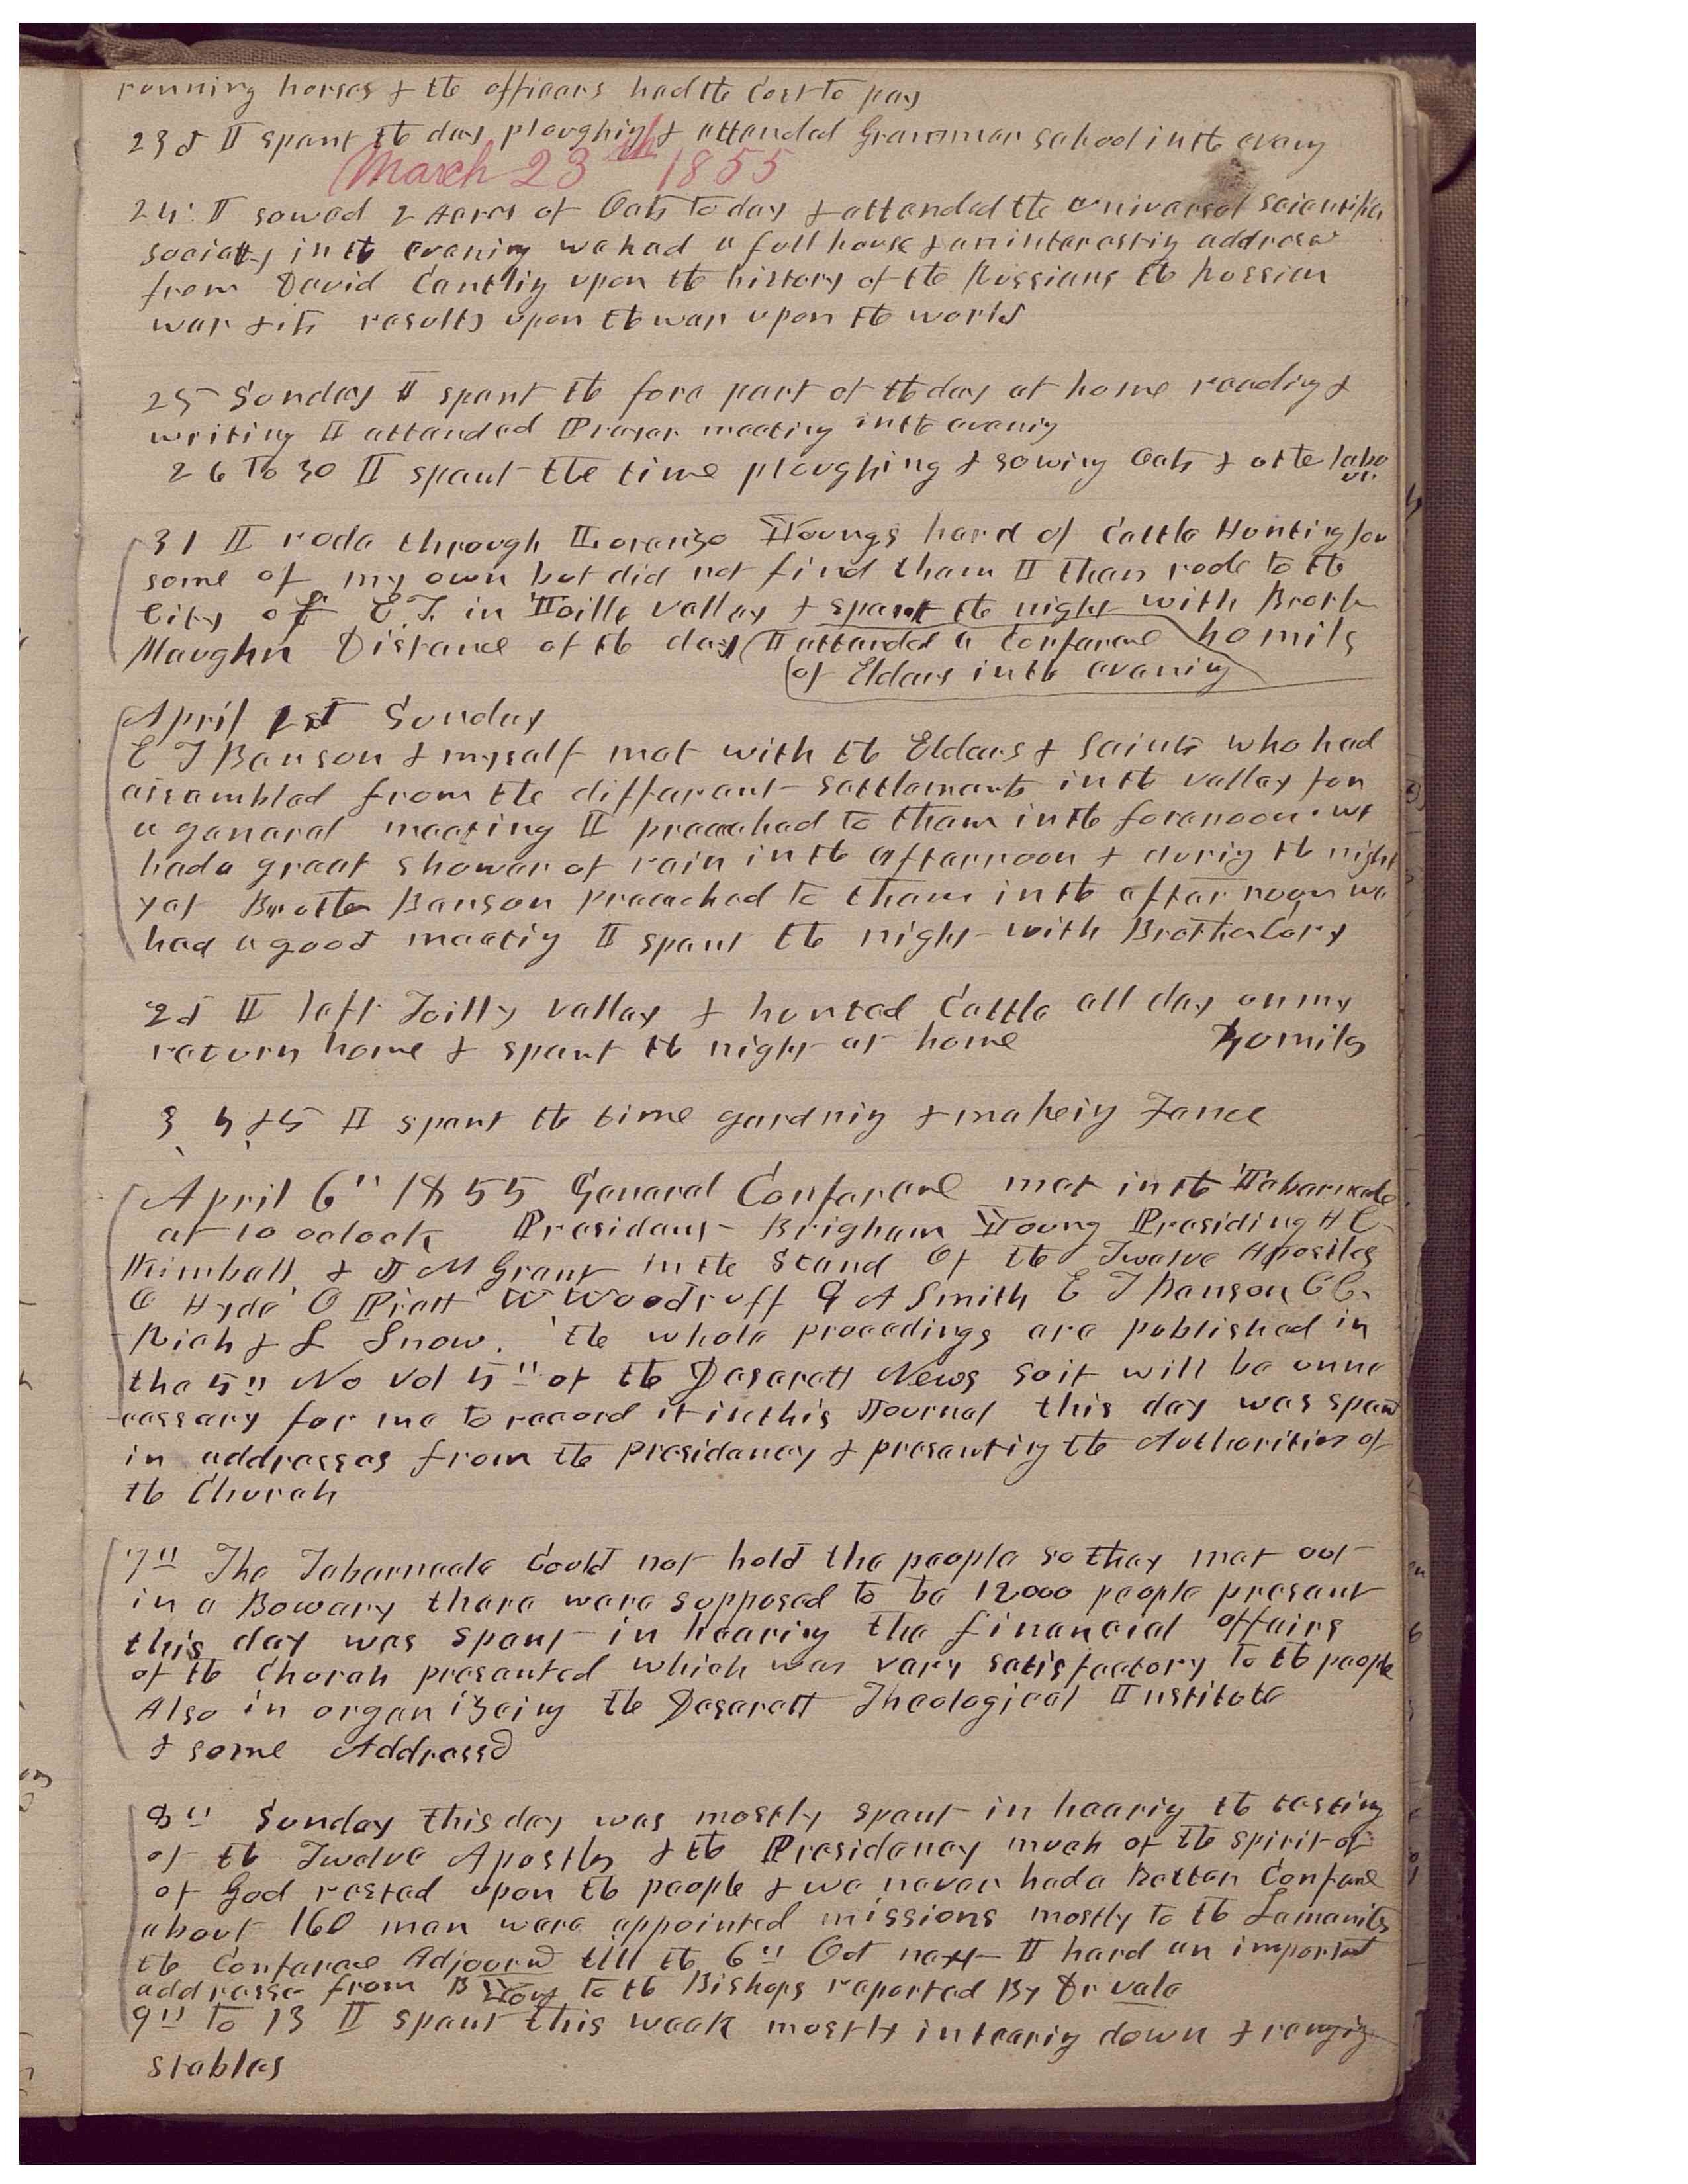 running horses & the officers had the Cost to pay
23d I spent the day ploughing & attended Grammar school in the eveny
March 23th 1855
24: I sowed 2 Acres of Oats to day & attended the universal scientific
society in the evening we had a full house & an interesting address
from David Cantling upon the history of the Russians the Russian
war & its results upon the war upon the world
25 Sunday I spent the fore part of the day at home reading &
writing I attended Prayer meeting in the evenig
26 To 30 I spent the time ploughing & sowing Oats & other labo
ur.
31 I rode through Lorenzo Youngs herd of Cattle Hunting for
some of my own but did not find them I then rode to the
City of E.T. in Toille valley & spent the night with Brother
Maughn Distance of the day (I attended a Conferance 40 mils
of Elders in the evening
April 1st Sunday
E T Benson & myself met with the Elders & Saints who had
assembled from the different settlements in the valley for
a general meeting I preached to them in the forenoon. we
had a great shower of rain in the afternoon & durig the night
yet Brother Benson preached to them in the afternoon we
had a good meetig I spent the night with Brother Cory
2d I left Toilly valley & hunted Cattle all day on my
return home & spent the night at home 40 mils
3, 4, & 5 I spent the time gardnig & makeig Fence
April 6" 1855 General Conferance met in the Tabernacle
at 10 oclock President Brigham Young Presiding H C
Kimball & J M Grant in the Stand Of the Twelve Apostles
O Hyde O Pratt W Woodruff G A Smith E T Benson C C.
Rich & L Snow. the whole procedings are published in
the 5" No Vol 5" of the Deserett News so it will be unne
cessary for me to record it in this Journal this day was spent
in addresses from the Presidency & presenting the Authorities of
the Church
7" The Tabernacle Could not hold the people so they met out
in a Bowery there were supposed to be 12000 people present
this day was spent in hearing the financial affairs
of the Church presented which was very satisfactory to the people
Also in organizeing the Deserett Theological Institute
& some Addressd
8" Sunday this day was mostly spent in hearig the testimy
of the Twelve Apostls & the Presidency much of the spirit of
of God rested upon the people & we never had a better Conferance
about 160 men were appointed missions mostly to the Lamanites
the Conferance Adjournd till the 6" Oct next I hard an important
addresse from B Young to the Bishops reported By Dr vale
9" To 13 I spent this week mostly in tearig down &
stables